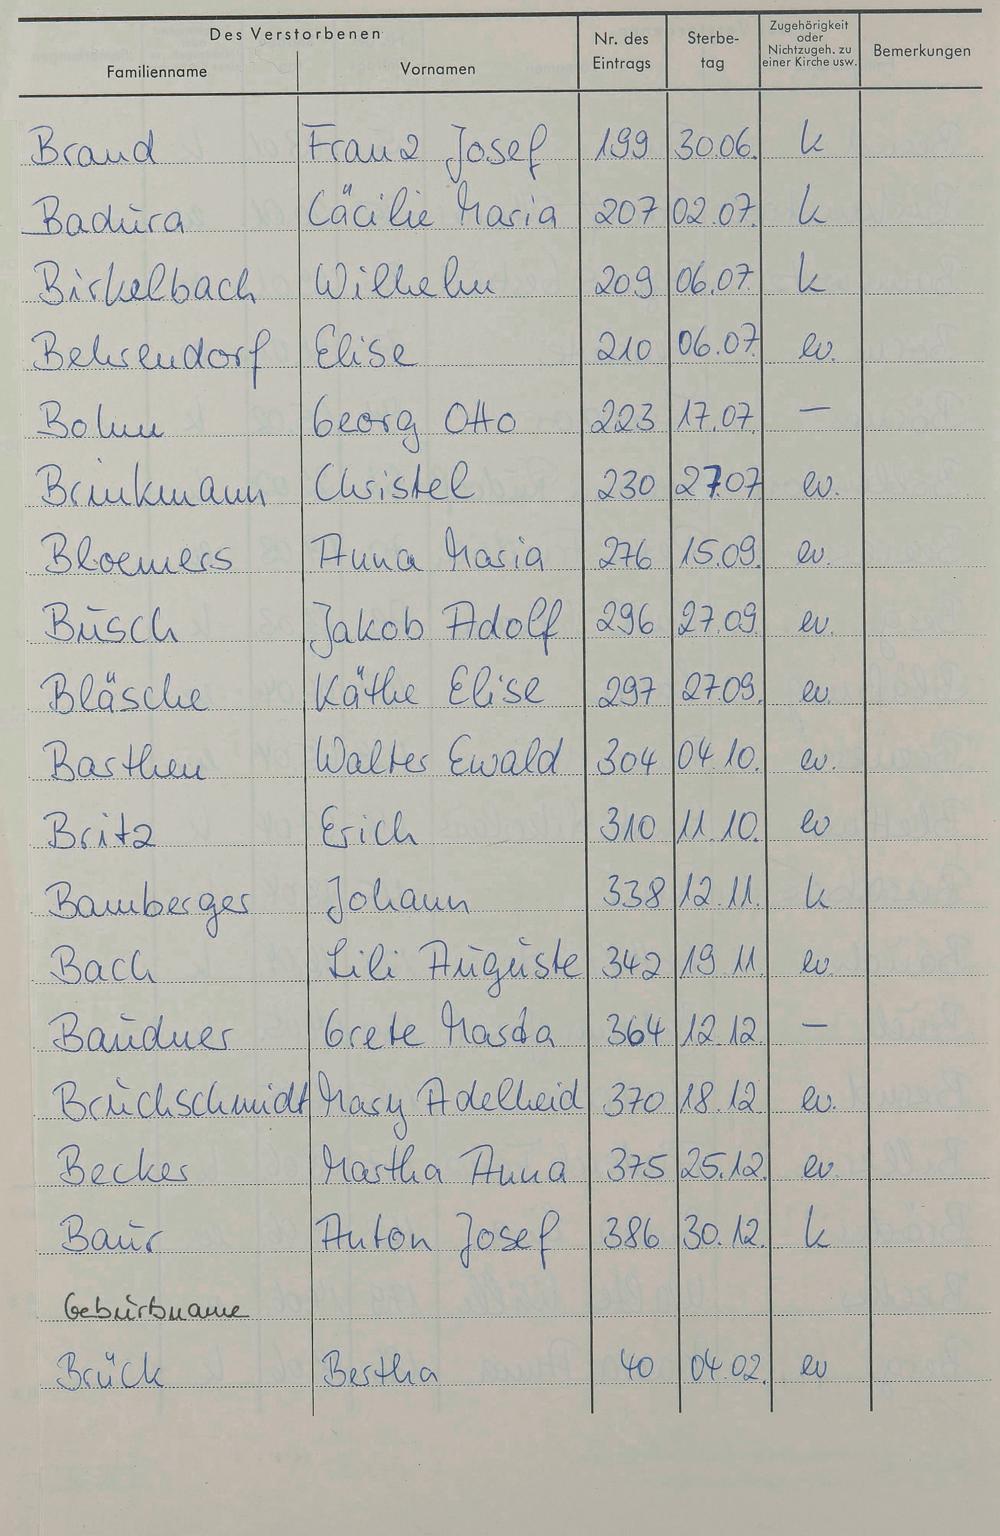 Des Verstorbenen
Familienname Vornamen Nr. des Eintrags Sterbe-tag Zugehörigkeit oder Nichtzugeh. zu einer Kirche usw. Bemerkungen
Brand Franz Josef 199 30.06. k
Badura Cäcilie Maria 207 02.07. k
Birkelbach Wilhelm 209 06.07. k
Behrendorf Elise 210 06.07. ev.
Bohm Georg Otto 223 17.07. —
Brinkmann Christel 230 27.07 ev.
Bloemers Anna Maria 276 15.09. ev.
Busch Jakob Adolf 296 27.09. ev.
Bläsche Käthe Elise 297 27.09. ev.
Barthen Walter Ewald 304 04.10. ev.
Britz Erich 310 11.10. ev
Bamberger Johann 338 12.11. k
Bach Lili Auguste 342 19.11. ev.
Baudner Grete Marta 364 12.12. —
Bruchschmidt Mary Adelheid 370 18.12. ev.
Becker Martha Anna 375 25.12. ev.
Baur Anton Josef 386 30.12. k
Geburtsname
Brück Bertha 40 04.02. ev